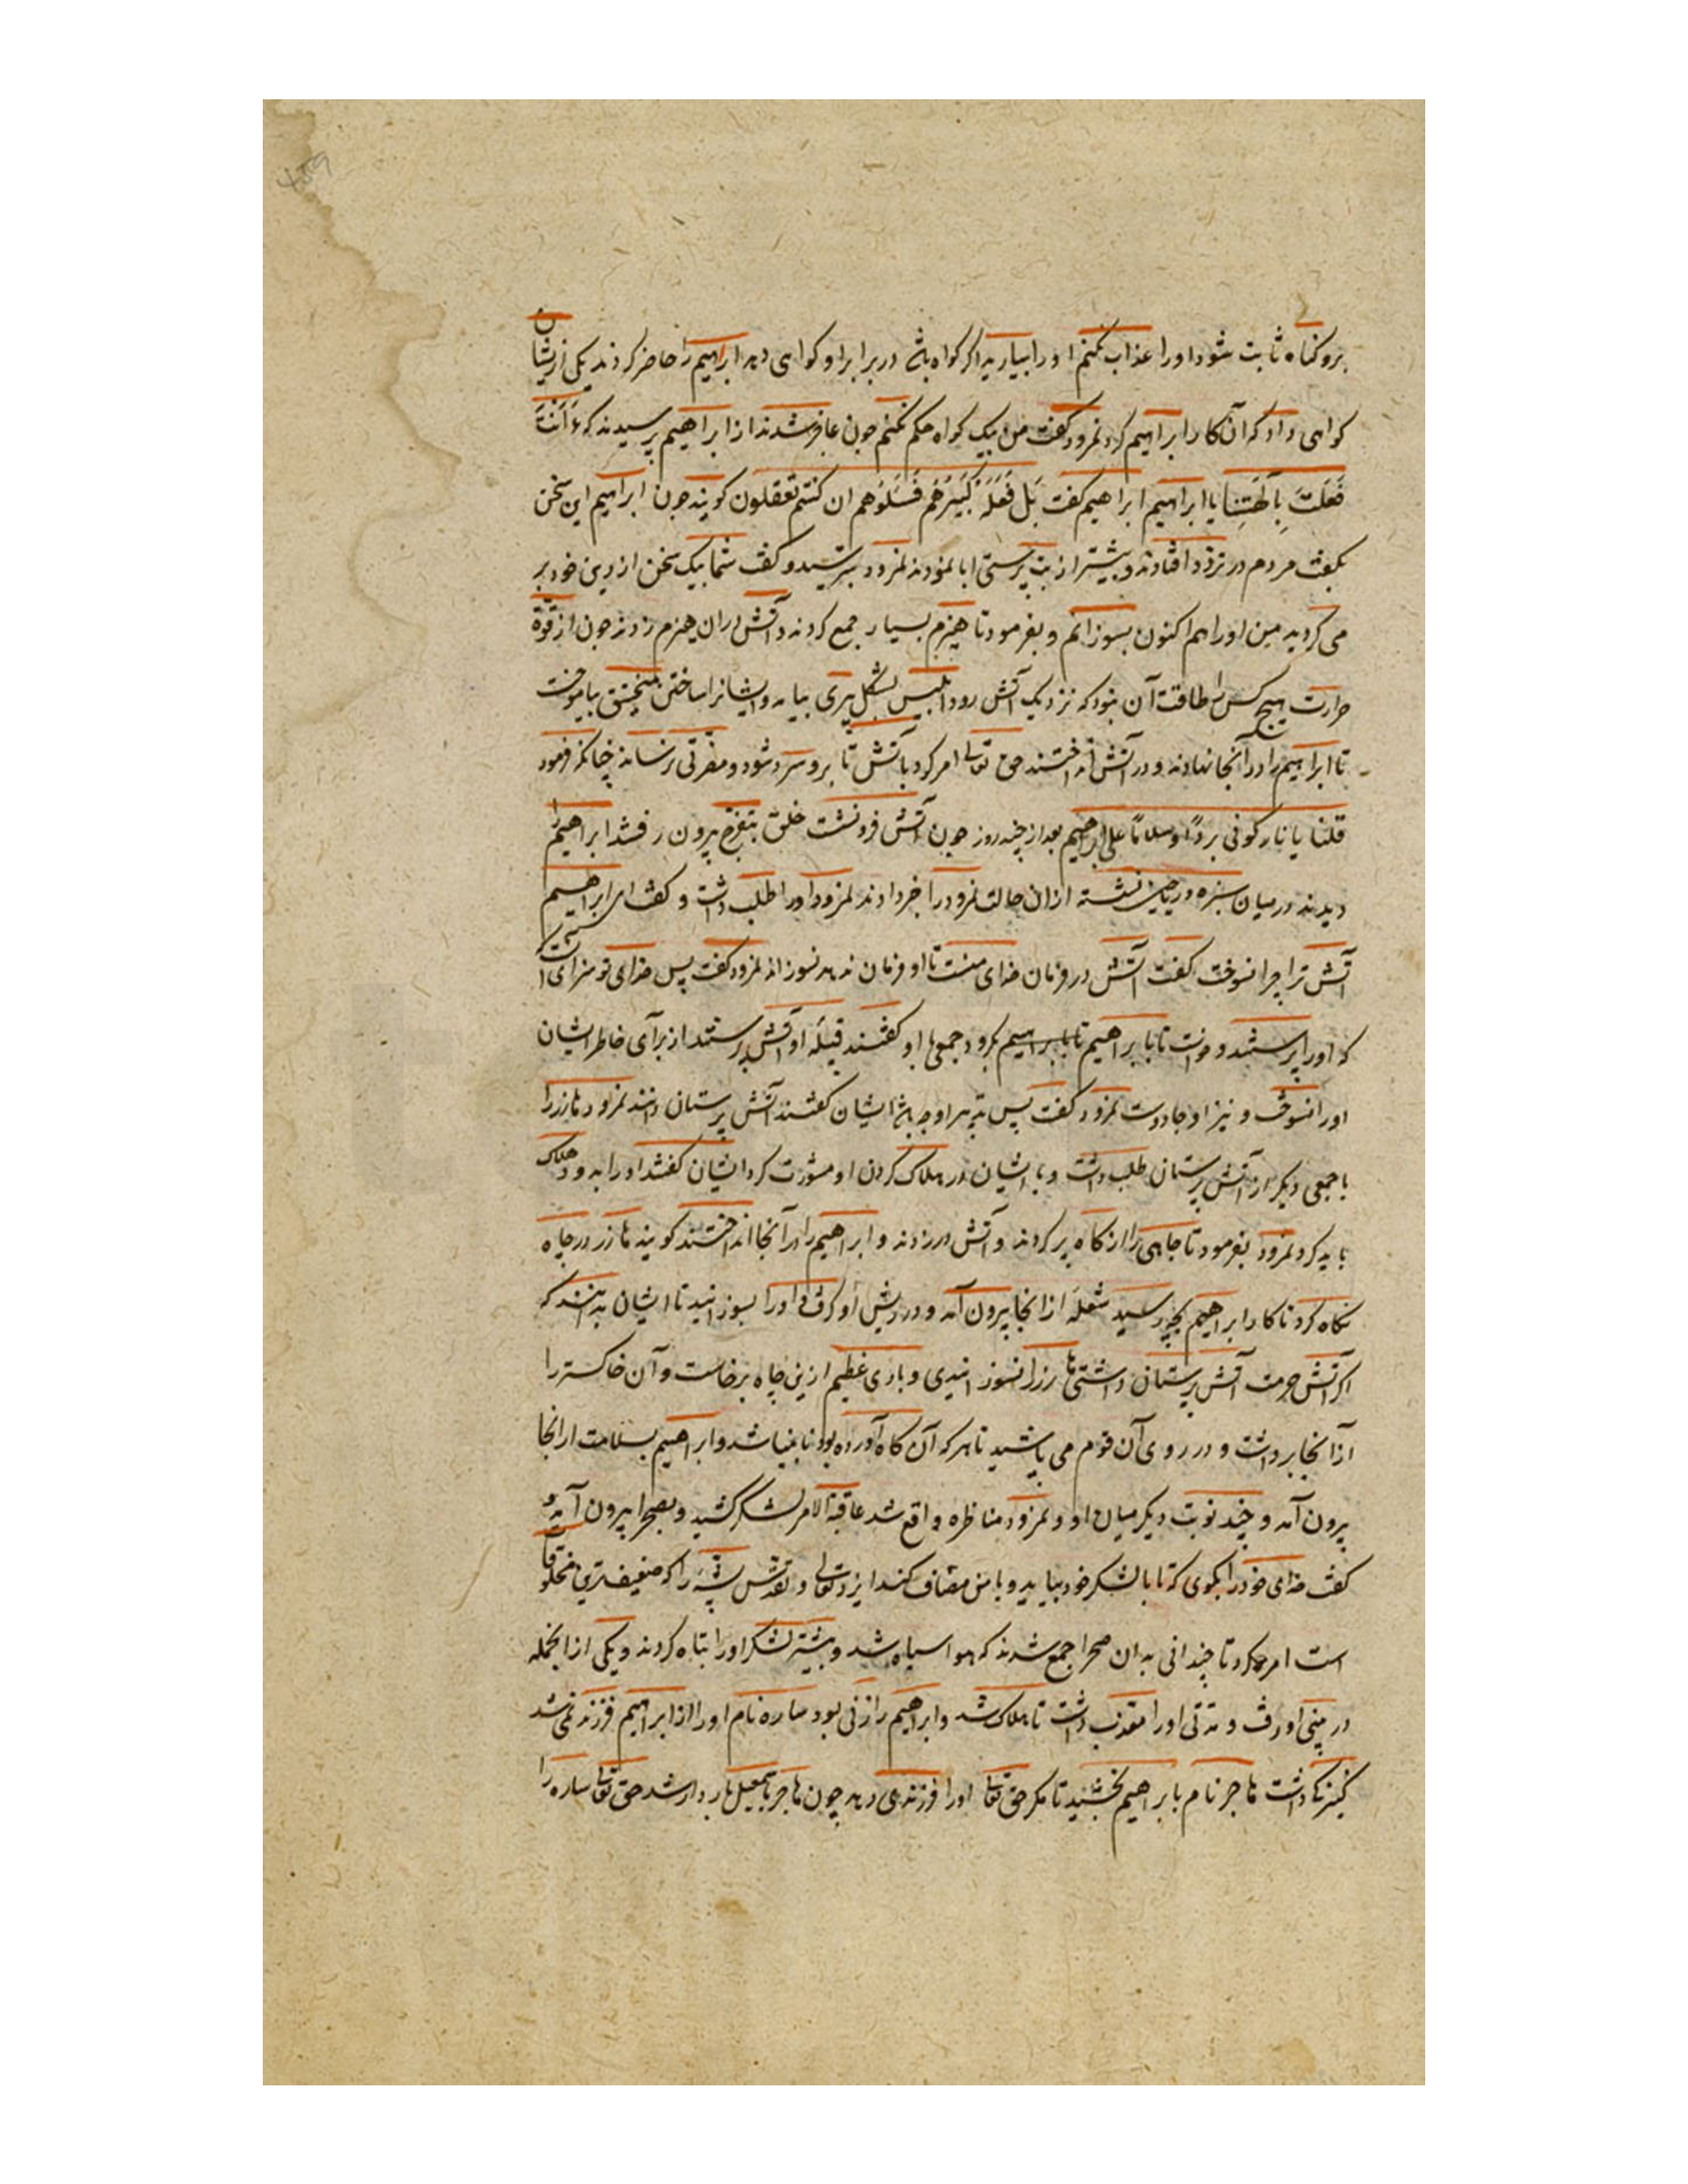 برو کناه ثابت شود او را عذاب نکنم او را بیارید اکر کواه باشد در برابر او کواهی دهد ابراهیم را حاضر کردند یکی ازیشان
کواهی داد که آن کار ابراهیم کرد نمرود کفت من بیک کواه حکم نکنم جون عاجز شدند از ابراهیم پرسیدند که ءَاَنْتَ
فَعَلتَ بِآلِهَتِنا یا ابراهیم ابراهیم کفت بَل فَعَلَهُ کَبیرُهُم فَسئَلُوهُم ان کنتم تعقلون کویند جون ابراهیم این سخن
بکفت مردم در تردد افتادند و بیشتر از بت پرستی ابا نمودند نمرود بترسید و کفت شما بیک سخن از دین خود بر
می کردید من او را هم اکنون بسوزانم و بفرمود تا هیزم بسیار جمع کردند و آتش دران هیزم زدند جون از قوّة
حرارت هیچ کس را طاقت آن نبود که نزدیک آتش رود ابلیس بشکل پیری بیامد و ایشانرا ساختن منجنیق بیاموخت
تا ابراهیم را در آنجا نهادند و در آتش انداختند حق تعالی امر کرد بآتش تا برو سرد شود و مضرتی نرساند چنانکه فرمود
قلنا یا نار کونی برداً وسلاماً علی ابراهیم بعد از چند روز جون آتش فرو نشست خلق بتفرج بیرون رفتند ابراهیم را
دیدند در میان سبزه و ریاحین نشسته ازان حالت نمرود را خبر دادند نمرود او را طلب داشت و کفت ای ابراهیم
آتش ترا چرا نسوخت کفت آتش در فرمان خدای منست تا او فرمان ندهد نسوزاند نمرود کفت پس خدای تو سزای آنست
که او را پرستند و خواست تا با ابراهیم بکرود جمعی با او کفتند قبیله او آتش پرستند از برای خاطر ایشان
او را نسوخت و نیز او جادوست نمرود کفت پس تدبیر او چه باشد ایشان کفتند آتش پرستان دانند نمرود هارزرا
با جمعی دیکر از آتش پرستان طلب داشت و با ایشان در هلاک کردن او مشورت کرد ایشان کفتند او را بدود هلاک
باید کرد نمرود بفرمود تا چاهی را از کاه پر کردند و آتش در زدند و ابراهیم را در آنجا انداختند کویند هارز در چاه
نکاه کرد تا کار ابراهیم بچه رسید شعله از انجا بیرون آمد و در ریش او کرفت و او را بسوزانید تا ایشان بدانند که
اکر آتش حرمت آتش پرستان داشتی هارزرا نسوزانیدی و بادی عظیم ازین چاه برخاست و آن خاکستر را
از انجا برداشت و در روی آن قوم می پاشید تا هر که آن کاه آورده بود نابینا شد و ابراهیم بسلامت از انجا
بیرون آمد و چند نوبت دیکر میان او و نمرود مناظره واقع شد عاقبة الامر لشکر کشید و بصحرا بیرون آمد و
کفت خدای خود را بکوی که تا با لشکر خود بیاید و با من مصاف کند ایزد تعالی و تقدس پشه را که ضعیف ترین مخلوقات
است امر کرد تا چندانی بدان صحرا جمع شدند که هوا سیاه شد و بیشتر لشکر او را تباه کردند و یکی از انجمله
در بینی او رفت و مدتی او را معذب داشت تا هلاک شد و ابراهیم را زنی بود ساره نام او را از ابراهیم فرزند نمی شد
کنیزکی داشت هاجر نام بابراهیم بخشید تا مکر حق تعالی او را فرزندی دهد چون هاجر باسمعیل باردار شد حق تعالی ساره را